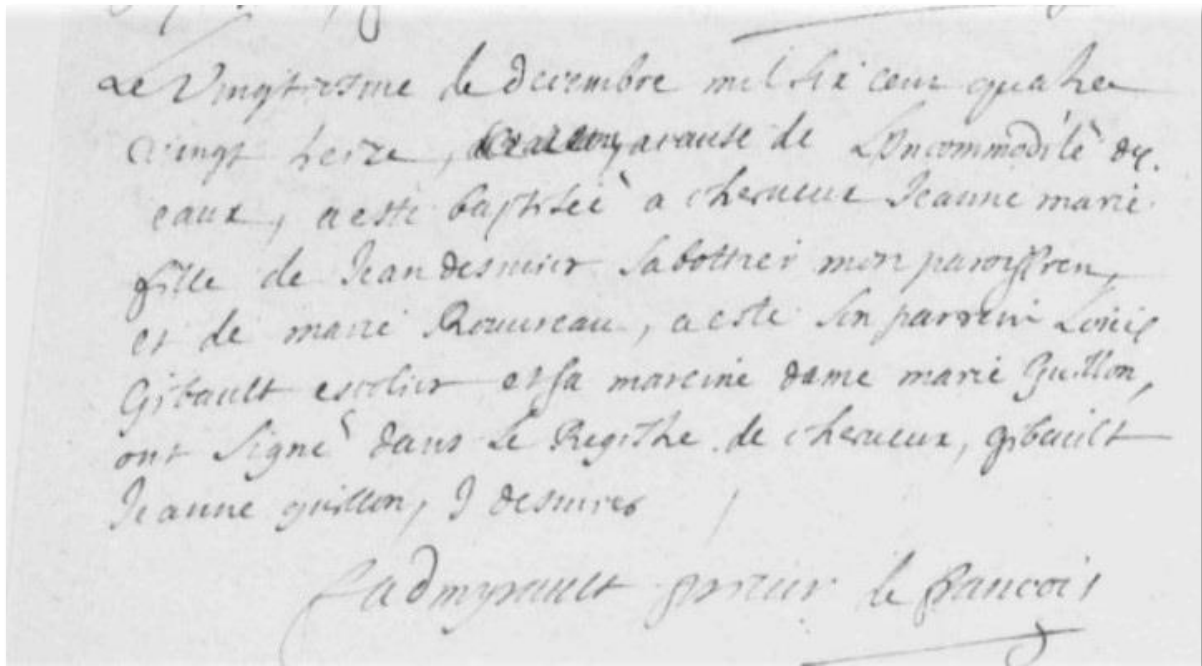 Le Vingtiesme de decembre mil six cens quatre
vingt treize, a cause de L'Incommodité des
eaux, a esté baptisée a cherueux Jeanne marie
fille de Jean desmier sabottier mon paroissien,
et de marie Rouureau, a esté son parrein Louis
Gibault escolier et sa mareine dame marie Guillon,
ont signé dans le Registre de cherueux, gibault
Jeanne guillon, J desmier
Ladmyrault prieur de francois